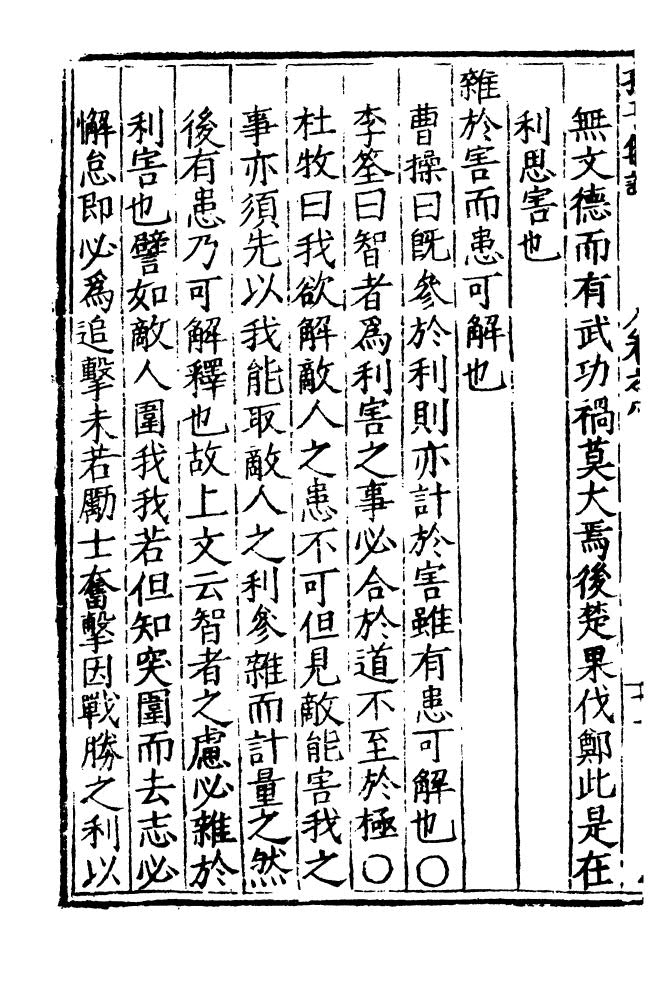 無文德而有武功禍莫大焉後楚果伐鄭此是在
利思害也
雜於害而患可解也
曹操曰旣參於利則亦計於害雖有患可解也〇
李筌曰智者爲利害之事必合於道不至於極〇
杜牧曰我欲解敵人之患不可但見敵能害我之
事亦須先以我能取敵人之利參雜而計量之然
後有患乃可解釋也故上文云智者之慮必雜於
利害也譬如敵人圍我我若但知突圍而去志必
懈怠即必爲追擊未若勵士奮擊因戰勝之利以